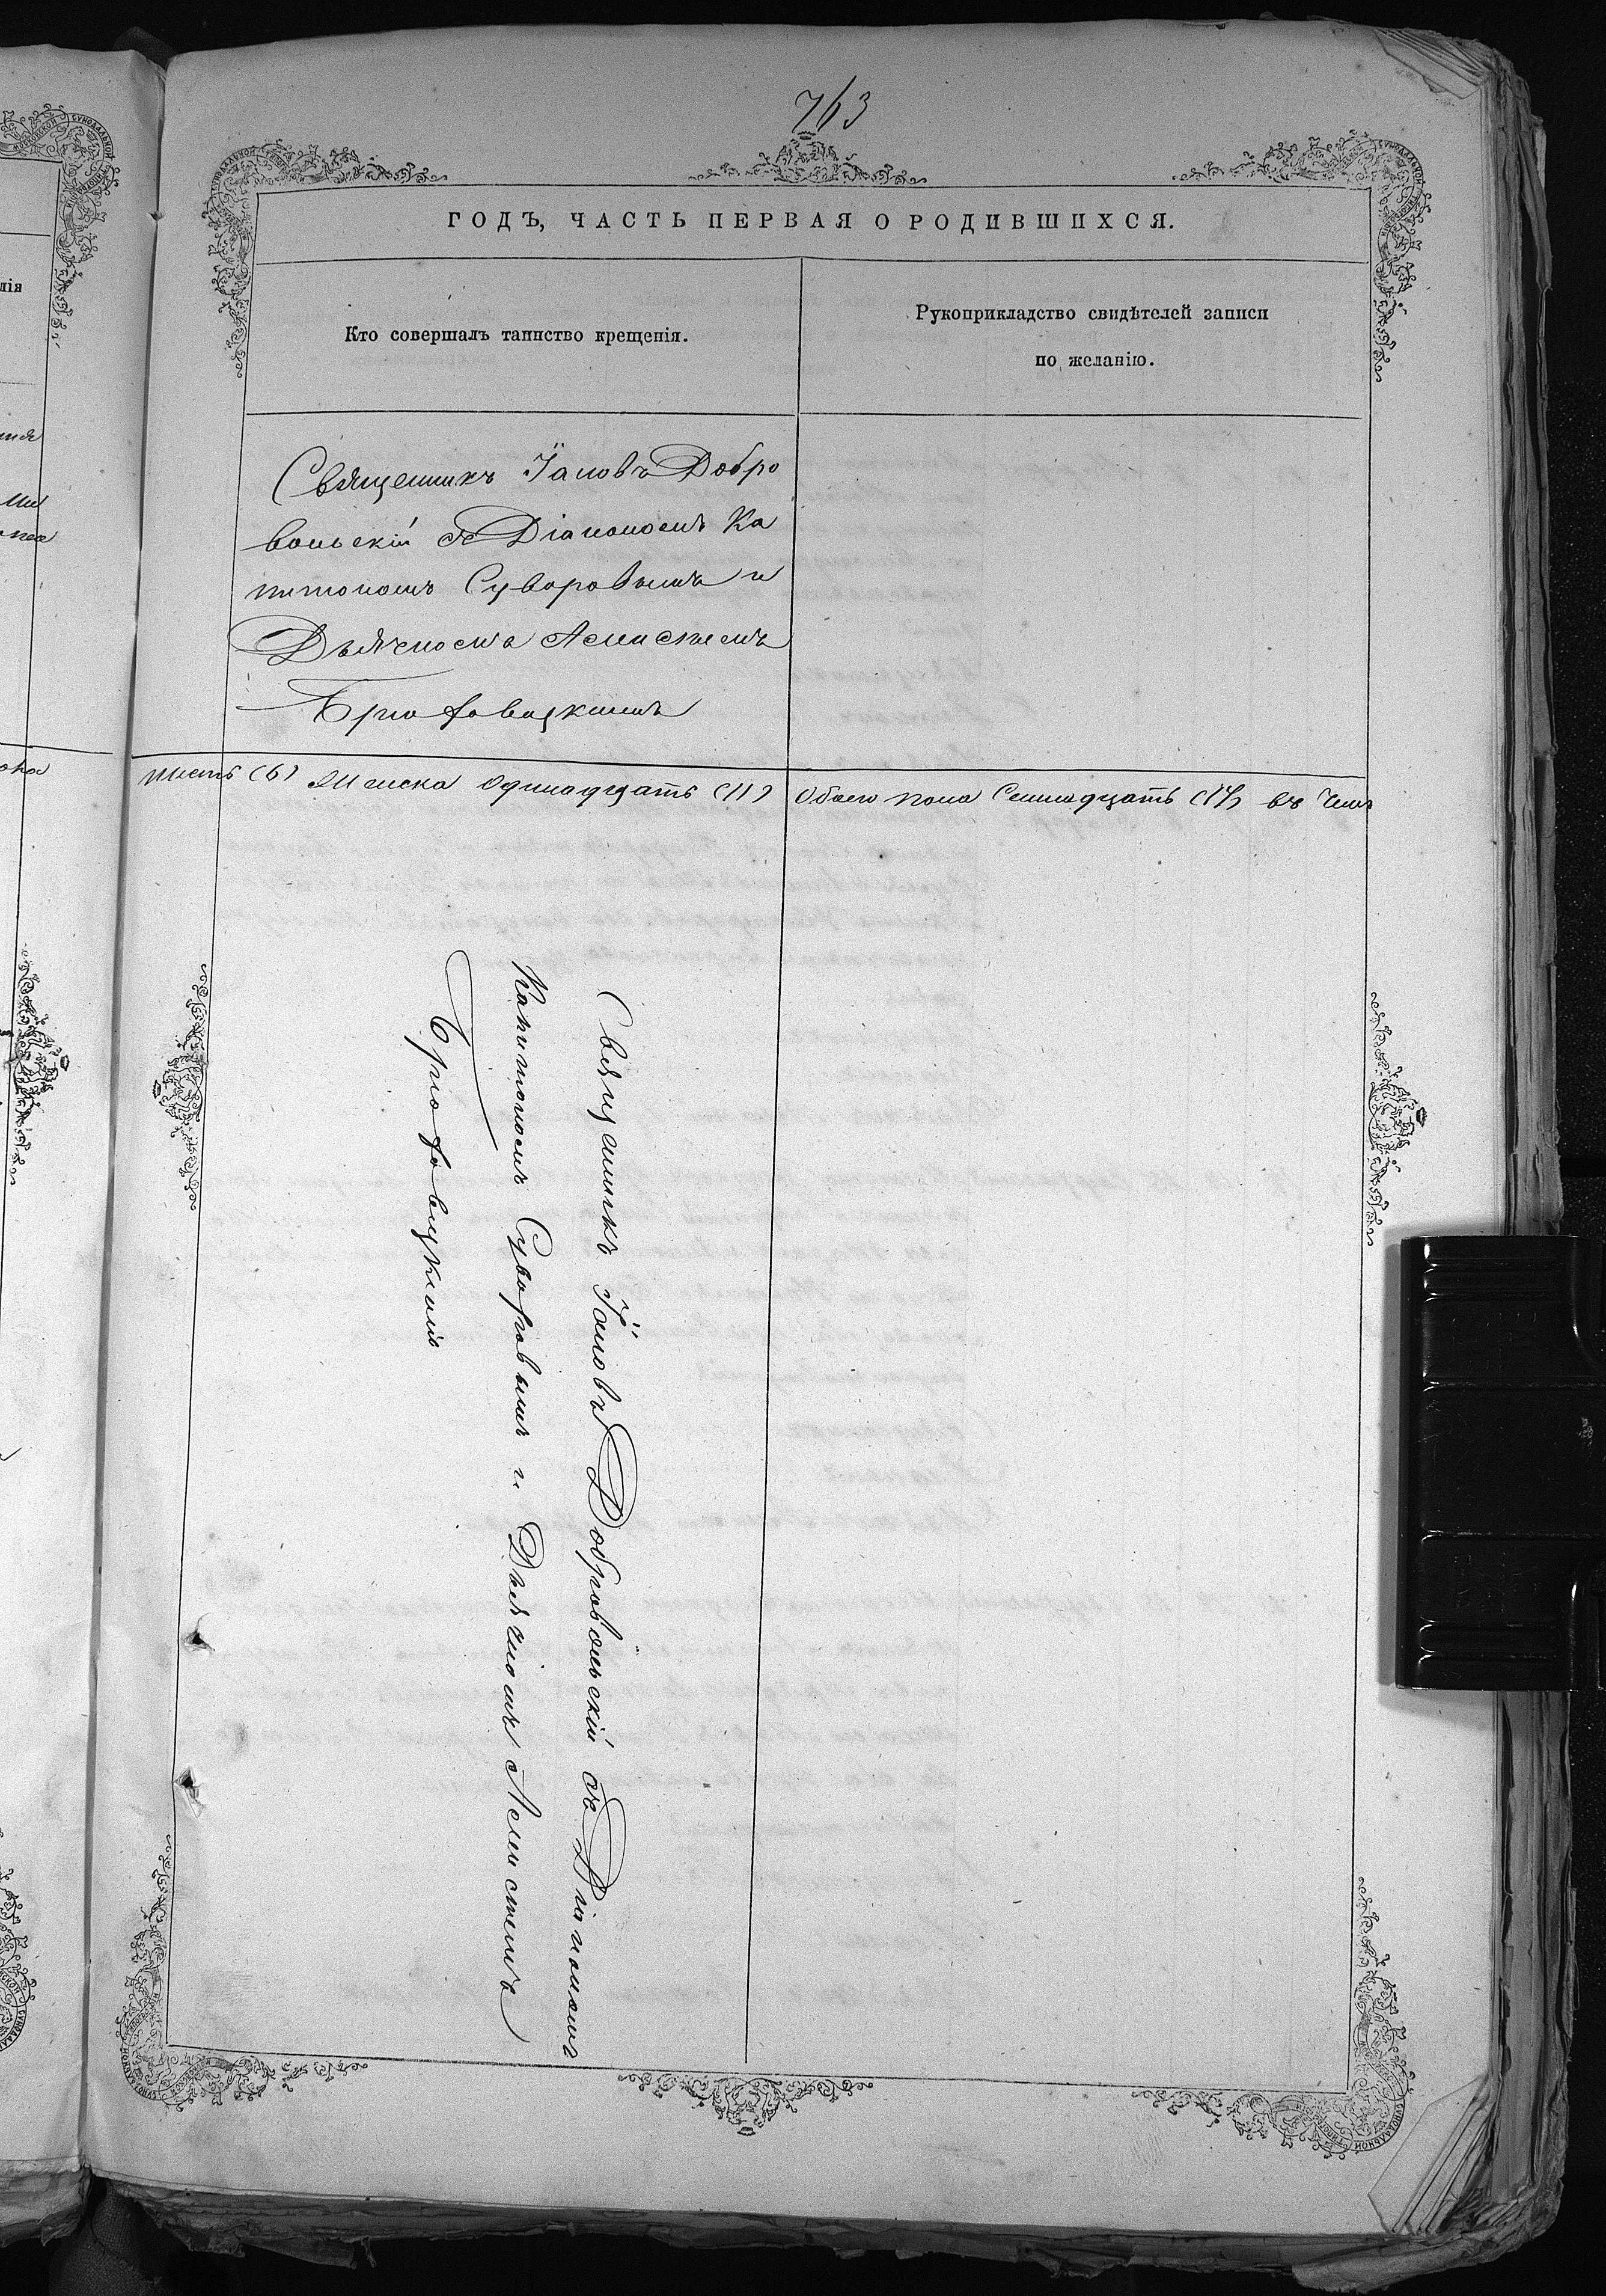 763
ГОДЪ, ЧАСТЬ ПЕРВАЯ О РОДИВШИХСЯ.
Кто совершалъ таинство крещенія.
Рукоприкладство свидѣтелей записи
по желанію.
Священникъ Іаковъ Добро
вольскій съ Діакономъ Ка
питономъ Суворовымъ и
Дьячкомъ Алексѣемъ
Брюховецкимъ
шесть (6) Женска одинадцать (11) Обоего пола Семнадцать (17) въ чемъ
Священникъ Іаковъ Добровольскій съ Діакономъ
Капитономъ Суворовымъ и Дьячкомъ Алексѣемъ
Брюховецкимъ